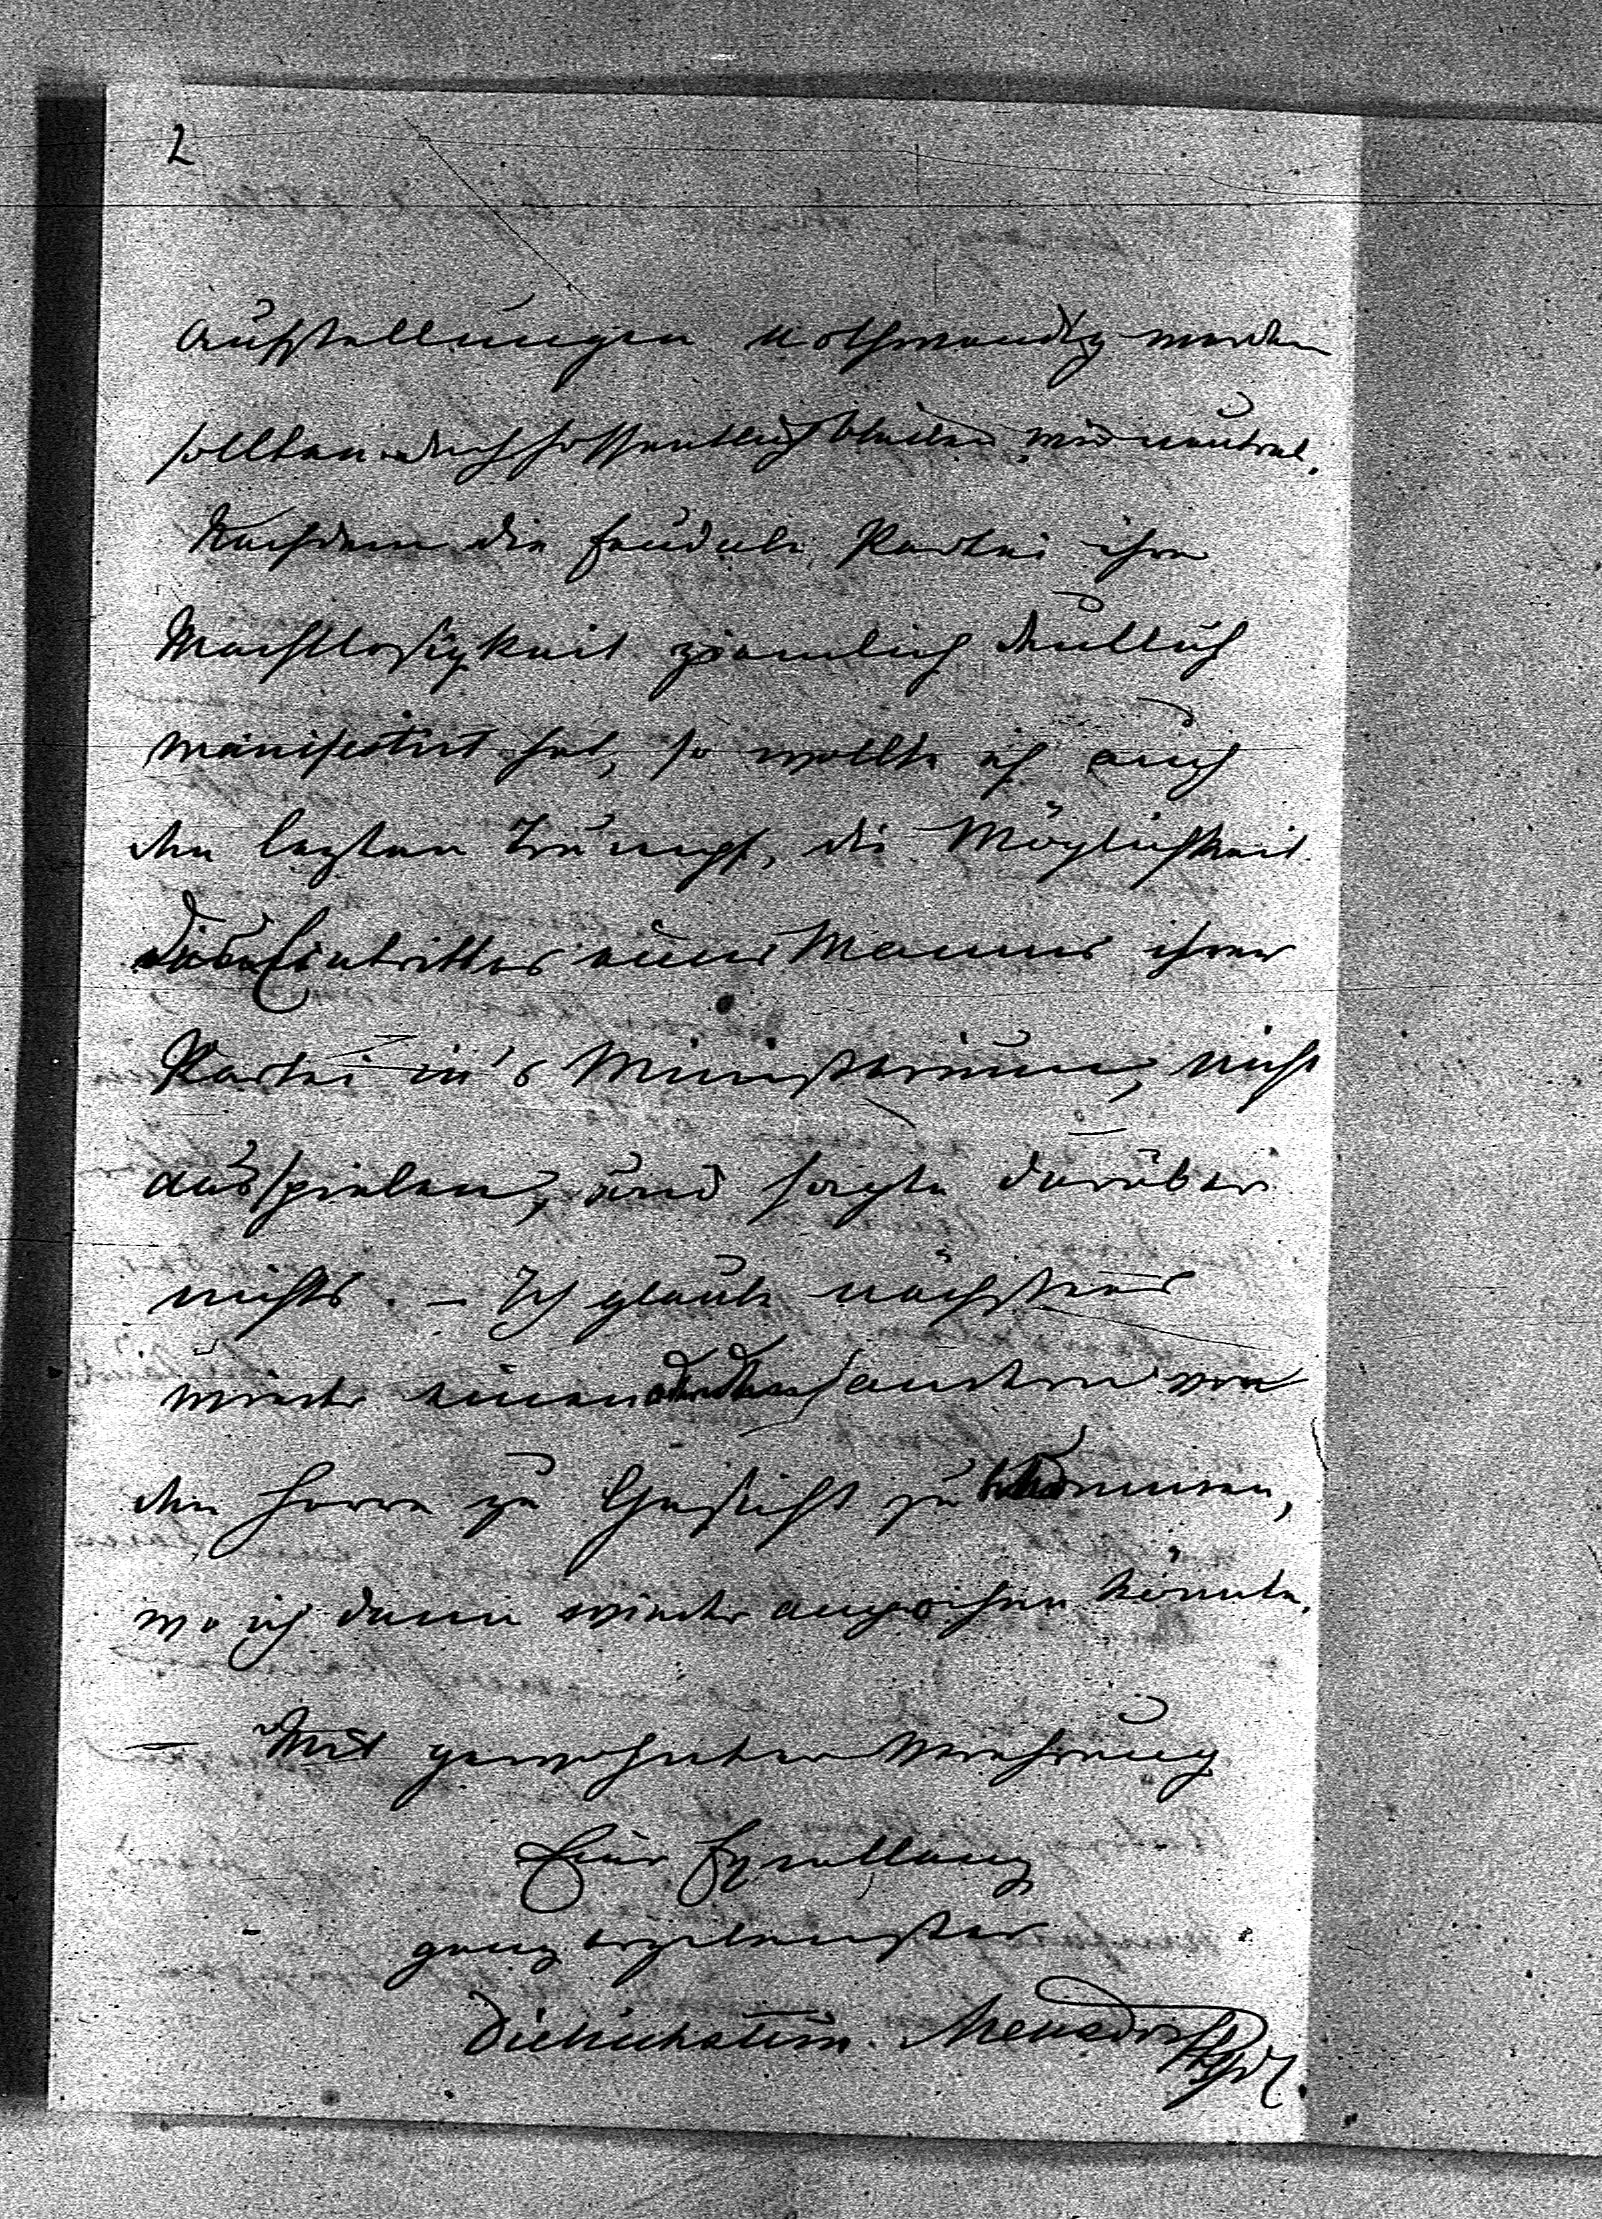 2
Aufstellungen nothwendig werden
sollten doch hoffentlich bleiben wir neutral.
Nachdem die feudale Partei ihre
Machtlosigkeit ziemlich deutlich
manifestirt hat, so wollte ich auch
den lezten Trumpf, die Möglichkeit
des Eintrittes eines Mannes ihrer
Partei in's Ministerium, nicht
ausspielen, und sagte darüber
nichts. – Ich glaube nächstens
wieder einen oder den andern von
den Herrn zu Gesicht zu bekommen,
wo ich dann wieder anziehen könnte.
– Mit gewohnter Verehrung
Euer Exzellenz
ganz ergebenster
Dietrichstein. Mensdorff